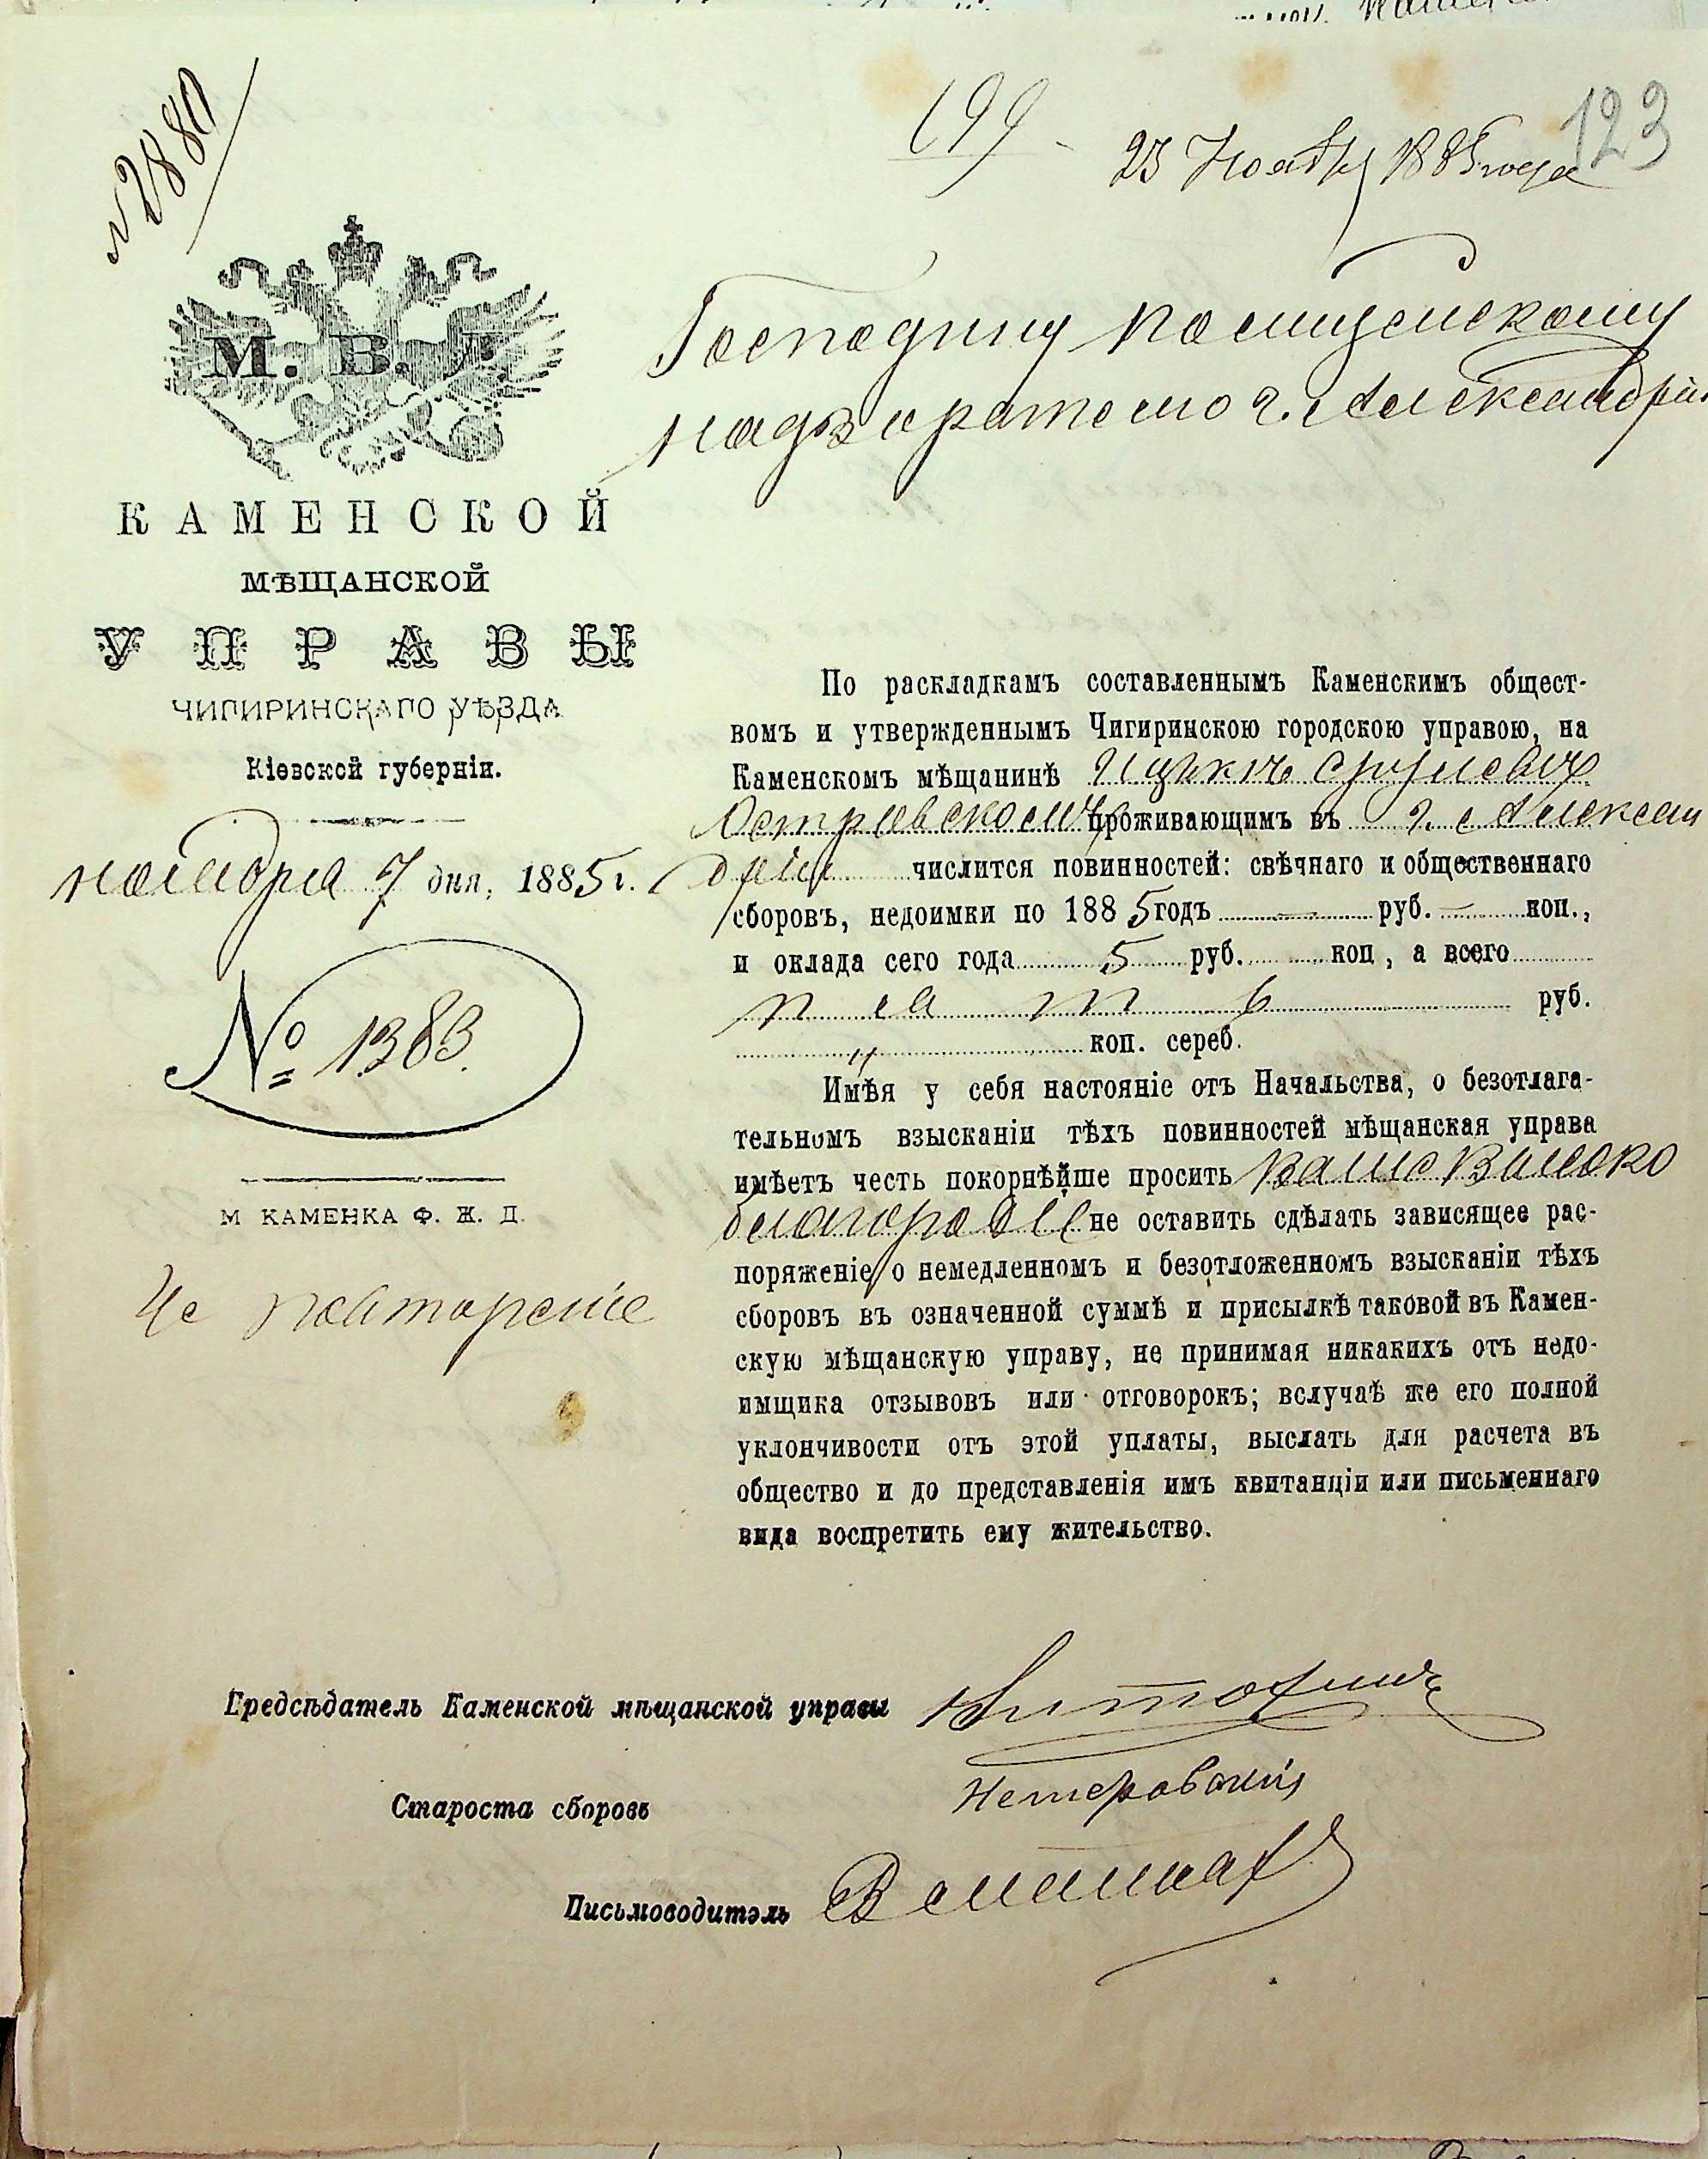 № 2880
199 -
123
23 Ноября 1885 года
Господину полицейскому
надзирателю г. Александріи
М. В. Д.
КАМЕНСКОЙ
МѢЩАНСКОЙ
УПРАВЫ
ЧИГИРИНСКАГО УѢЗДА
Кіевской губерніи.
ноября 7 дня, 1885 г.
№ 1383.
М КАМЕНКА Ф. Ж. Д.
По раскладкамъ составленнымъ Каменскимъ общест-
вомъ и утвержденнымъ Чигиринскою городскою управою, на
Каменскомъ мѣщанинѣ Ицькѣ Срулевѣ
Островскомъ проживающимъ въ г. Алексан
дріи числится повинностей: свѣчнаго и общественнаго
сборовъ, недоимки по 1885 годъ — руб. — коп.,
и оклада сего года 5 руб. коп, а всего
пять руб.
" коп. сереб.
Имѣя у себя настояніе отъ Начальства, о безотлага-
тельномъ взысканіи тѣхъ повинностей мѣщанская управа
имѣетъ честь покорнѣйше просить Ваше Высоко
благородіе не оставить сдѣлать зависящее рас-
поряженіе о немедленномъ и безотложенномъ взысканіи тѣхъ
сборовъ въ означенной суммѣ и присылкѣ таковой въ Камен-
скую мѣщанскую управу, не принимая никакихъ отъ недо-
имщика отзывовъ или отговорокъ; вслучаѣ же его полной
уклончивости отъ этой уплаты, выслать для расчета въ
общество и до представленія имъ квитанціи или письменнаго
вида воспретить ему жительство.
повтореніе
Предсѣдатель Каменской мѣщанской управы
Староста сборовъ
Письмоводитель